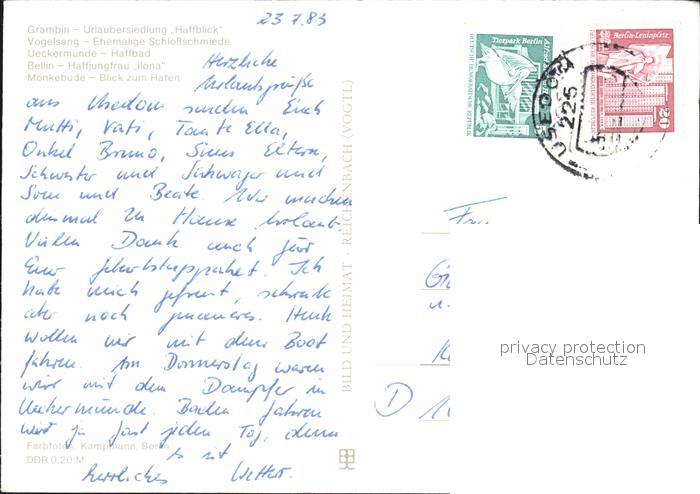 23.7.83
Grambin – Urlaubersiedlung „Haffblick"
Vogelsang – Ehemalige Schloßschmiede
Ueckermünde – Haffbad
Bellin – Haffjungfrau „Ilona"
Mönkebude – Blick zum Hafen
Herzliche
Urlaubsgrüße
aus Usedom senden Euch
Mutti, Vati, Tante Ella,
Onkel Bruno, Eltern,
Schwester und Schwager und
Sven und Beate. Wir machen
diesmal zu Hause Urlaub.
Vielen Dank auch für
Euer Geburtstagspaket. Ich
habe mich gefreut, schreibe
aber noch genaueres. Heute
wollen wir mit dem Boot
fahren. Am Donnerstag waren
wir mit dem Dampfer in
Ueckermünde. Baden fahren
wir ja fast jeden Tag, denn
es ist
herrliches Wetter.
Farbfotos: Kampmann, Berlin
DDR 0,20 M
BILD UND HEIMAT · REICHENBACH (VOGTL)
Tierpark Berlin
DEUTSCHE DEMOKRATISCHE REPUBLIK
Berlin-Leninplatz
DEUTSCHE DEMOKRATISCHE REPUBLIK
20
USEDOM
2225
D
privacy protection
Datenschutz